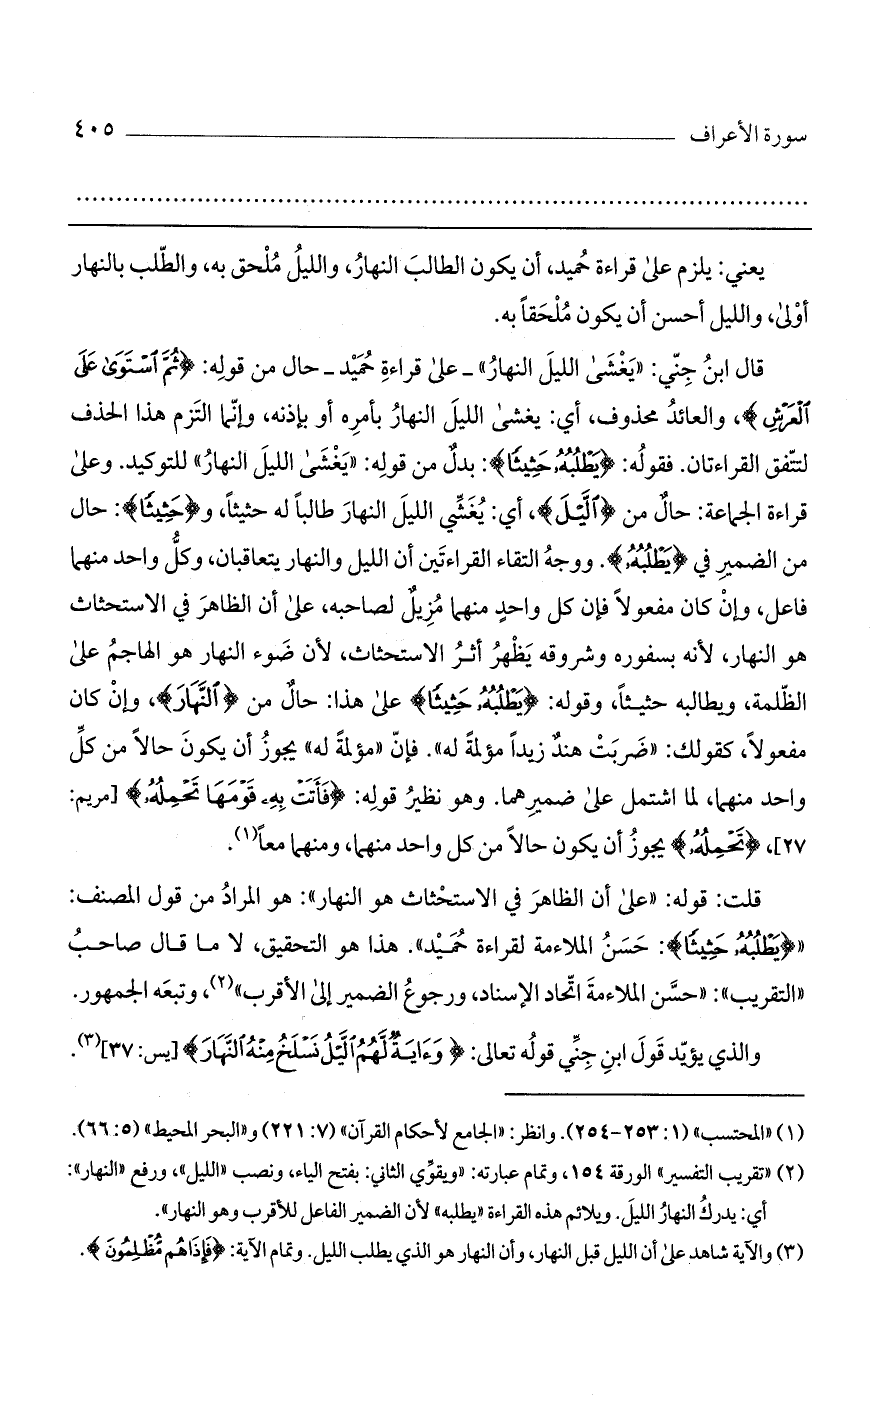 سورة الأعراف ٤٠٥
يعني: يلزم علىٰ قراءة حُميد، أن يكون الطالبَ النهارُ، والليلُ مُلْحق به، والطّلب بالنهار
أوْلىٰ، والليل أحسن أن يكون مُلْحَقاً به.
قال ابنُ جِنّي: «يَغْشَىٰ الليلَ النهارُ» ـ علىٰ قراءةِ حُمَيْد ـ حال من قولِه: ﴿ثُمَّ ٱسْتَوَىٰ عَلَى
ٱلْعَرْشِ﴾، والعائدُ محذوف، أي: يغشىٰ الليلَ النهارُ بأمرِه أو بإذنه، وإنّما التَزم هذا الحذف
لتتّفق القراءتان. فقولُه: ﴿يَطْلُبُهُۥ حَثِيثًا﴾: بدلٌ من قولِه: «يَغْشَىٰ الليلَ النهارُ» للتوكيد. وعلىٰ
قراءة الجماعة: حالٌ من ﴿ٱلَّيْلَ﴾، أي: يُغَشِّي الليلَ النهارَ طالباً له حثيثاً، و﴿حَثِيثًا﴾: حال
من الضميرِ في ﴿يَطْلُبُهُۥ﴾. ووجهُ التقاء القراءتَين أن الليل والنهار يتعاقبان، وكلُّ واحد منهما
فاعل، وإنْ كان مفعولاً فإن كل واحدٍ منهما مُزيلٌ لصاحبه، علىٰ أن الظاهرَ في الاستحثاث
هو النهار، لأنه بسفوره وشروقه يَظْهرُ أثرُ الاستحثاث، لأن ضَوء النهار هو الهاجمُ علىٰ
الظّلمة، ويطالبه حثيثاً، وقوله: ﴿يَطْلُبُهُۥ حَثِيثًا﴾ علىٰ هذا: حالٌ من ﴿ٱلنَّهَارَ﴾، وإنْ كان
مفعولاً، كقولك: «ضَربَتْ هندٌ زيداً مؤلمةً له». فإنّ «مؤلمةً له» يجوزُ أن يكونَ حالاً من كلِّ
واحد منهما، لما اشتمل علىٰ ضميرِهما. وهو نظيرُ قولِه: ﴿فَأَتَتْ بِهِۦ قَوْمَهَا تَحْمِلُهُۥ﴾ [مريم:
٢٧]، ﴿تَحْمِلُهُۥ﴾ يجوزُ أن يكون حالاً من كل واحد منهما، ومنهما معاً(١).
قلت: قوله: «علىٰ أن الظاهرَ في الاستحْثاث هو النهار»: هو المرادُ من قول المصنف:
«﴿يَطْلُبُهُۥ حَثِيثًا﴾: حَسَنُ الملاءمة لقراءة حُمَيْد». هذا هو التحقيق، لا ما قال صاحبُ
«التقريب»: «حسَّن الملاءمةَ اتّحاد الإسناد، ورجوعُ الضمير إلىٰ الأقرب»(٢)، وتبعَه الجمهور.
والذي يؤيّد قَولَ ابنِ جِنِّي قولُه تعالى: ﴿وَءَايَةٌ لَّهُمُ ٱلَّيْلُ نَسْلَخُ مِنْهُ ٱلنَّهَارَ﴾ [يس: ٣٧](٣).
(١) «المحتسب» (١: ٢٥٣-٢٥٤). وانظر: «الجامع لأحكام القرآن» (٧: ٢٢١) و«البحر المحيط» (٥: ٦٦).
(٢) «تقريب التفسير» الورقة ١٥٤، وتمام عبارته: «ويقوِّي الثاني: بفتح الياء، ونصب «الليل»، ورفع «النهار»:
أي: يدركُ النهارُ الليلَ. ويلائم هذه القراءة «يطلبه» لأن الضمير الفاعل للأقرب وهو النهار».
(٣) والآية شاهد علىٰ أن الليل قبل النهار، وأن النهار هو الذي يطلب الليل. وتمام الآية: ﴿فَإِذَا هُم مُّظْلِمُونَ﴾.